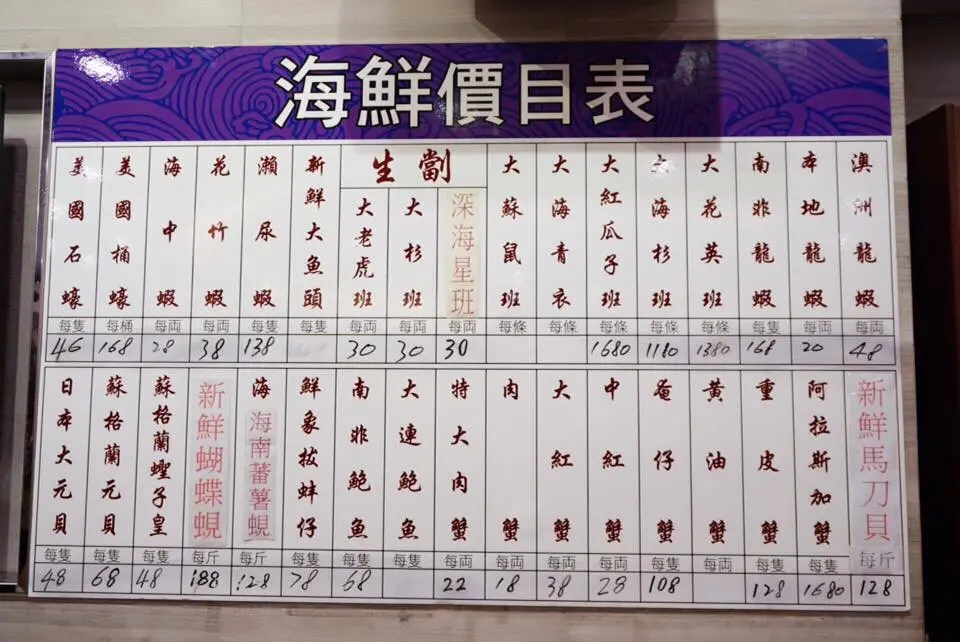 海鮮價目表
澳洲龍蝦 每両 48
本地龍蝦 每両 20
南非龍蝦 每隻 168
大花英班 每條 1380
大海杉班 每條 1180
大紅瓜子班 每條 1680
大海青衣 每條
大蘇鼠班 每條
生劏
深海星班 每両 30
大杉班 每両 30
大老虎班 每両 30
新鮮大魚頭 每隻
瀨尿蝦 每隻 138
花竹蝦 每両 38
海中蝦 每両 28
美國桶蠔 每桶 168
美國石蠔 每隻 46
新鮮馬刀貝 每斤 128
阿拉斯加蟹 每隻 1680
重皮蟹 每隻 128
黃油蟹 每両
奄仔蟹 每隻 108
中紅蟹 每両 28
大紅蟹 每両 38
肉蟹 每両 18
特大肉蟹 每両 22
大連鮑魚 每隻
南非鮑魚 每隻 68
鮮象拔蚌仔 每隻 78
海
海南蕃薯蜆 每斤 128
新鮮蝴蝶蜆 每斤 188
蘇格蘭蟶子皇 每隻 48
蘇格蘭元貝 每隻 68
日本大元貝 每隻 48